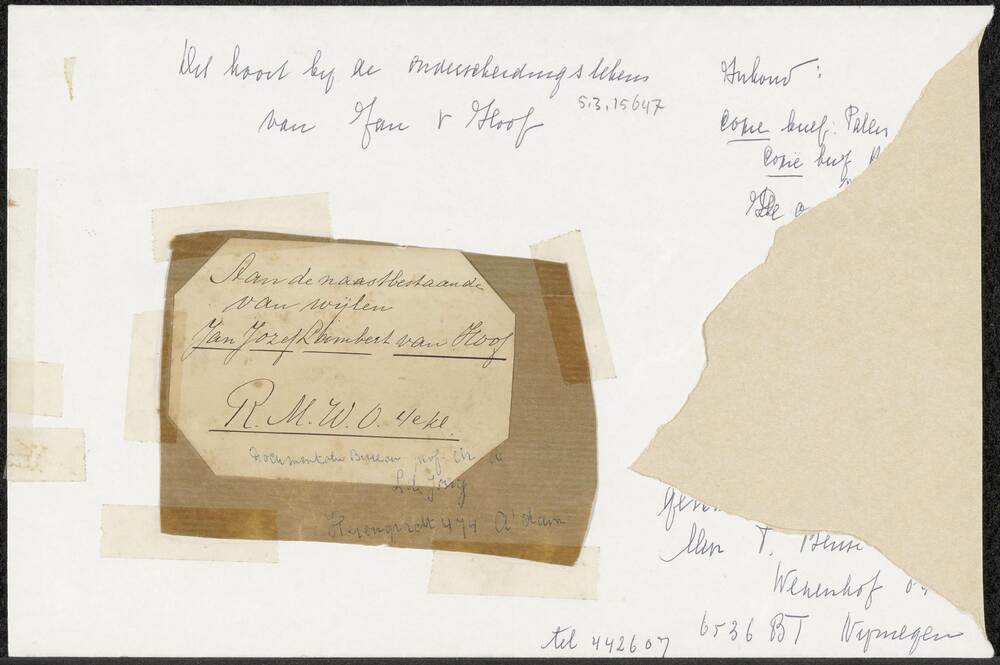 Dit hoort by de onderscheidingstekens
van Jan v Hoof
5.3.15647
Inhoud:
copie brief: Palen
Copie brief
De
Aan de naastbestaande
van wijlen
Jan Jozef Lambert van Hoof
R. M. W. O. 4e kl.
Documentatie Bureau prof. Dr.
L. de Jong
Herengracht 474 A'dam
Mevr T.
Wezenhof
6536 BT Nymegen
tel 442607